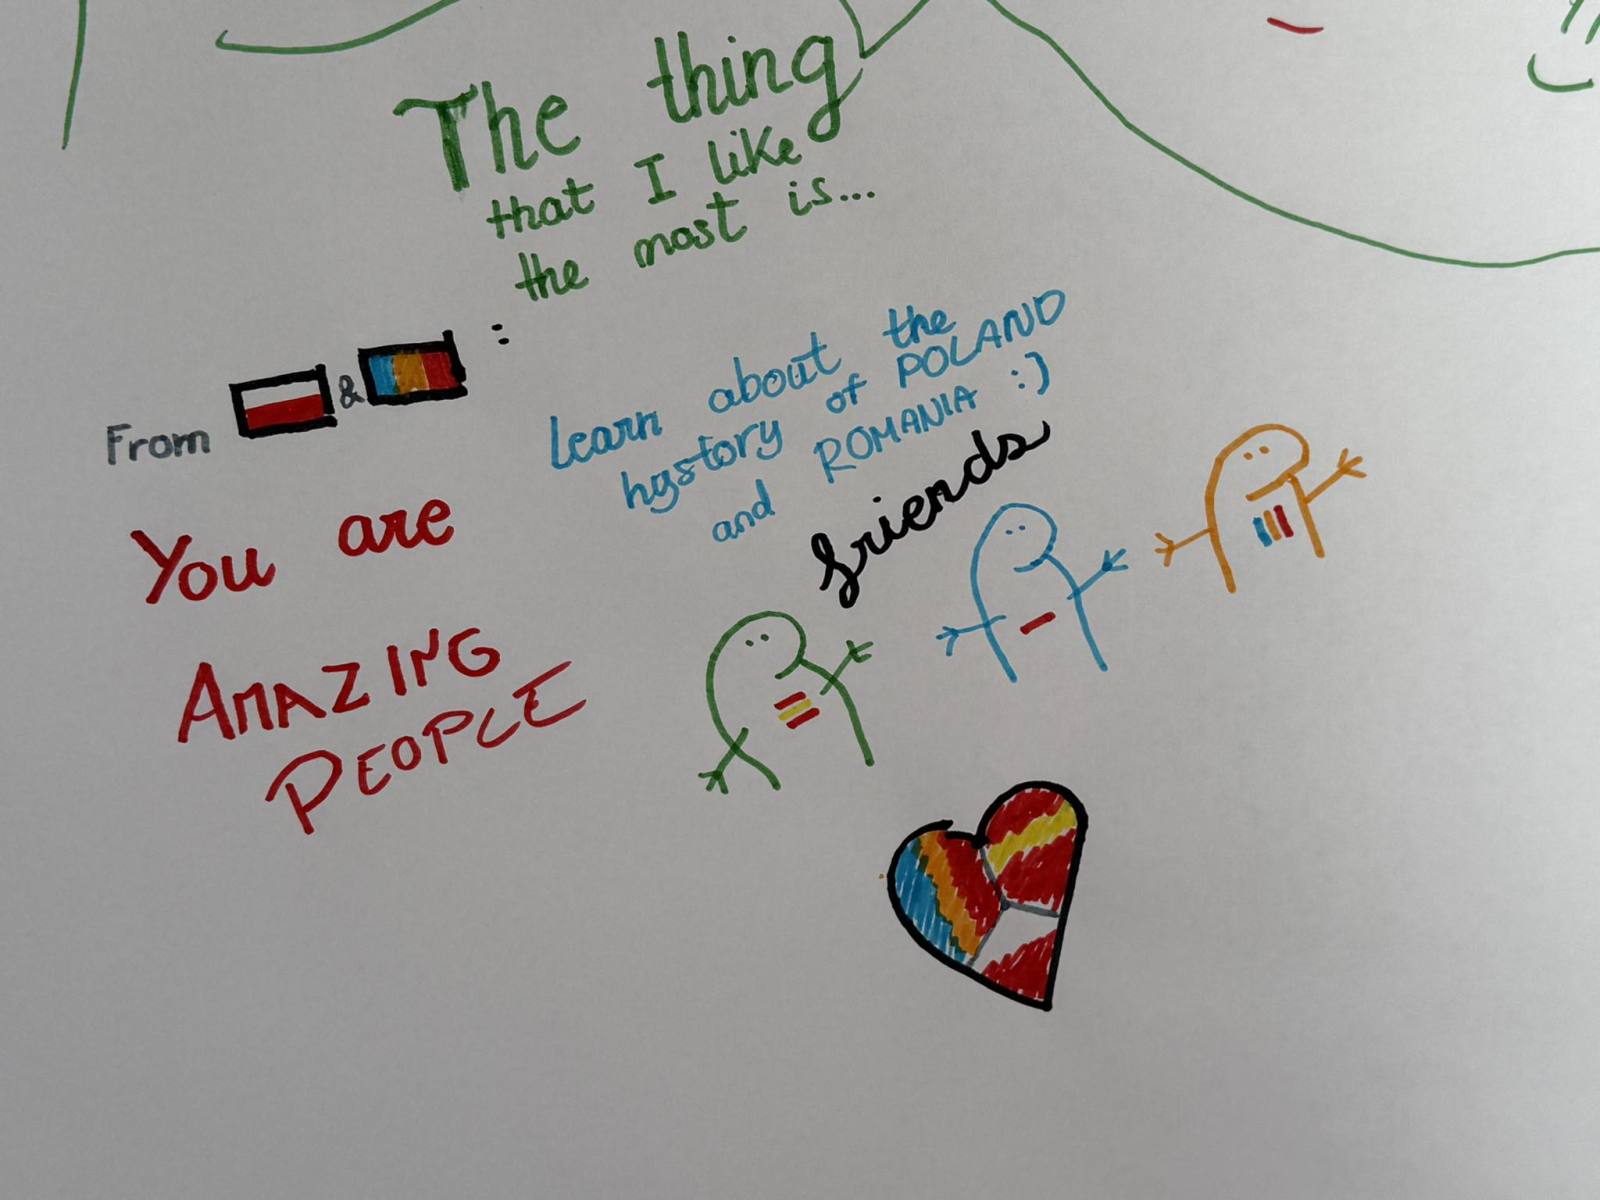 The thing
that I like
the most is...
From & :
learn about the
hystory of POLAND
and ROMANIA :)
friends
You are
AMAZING
PEOPLE